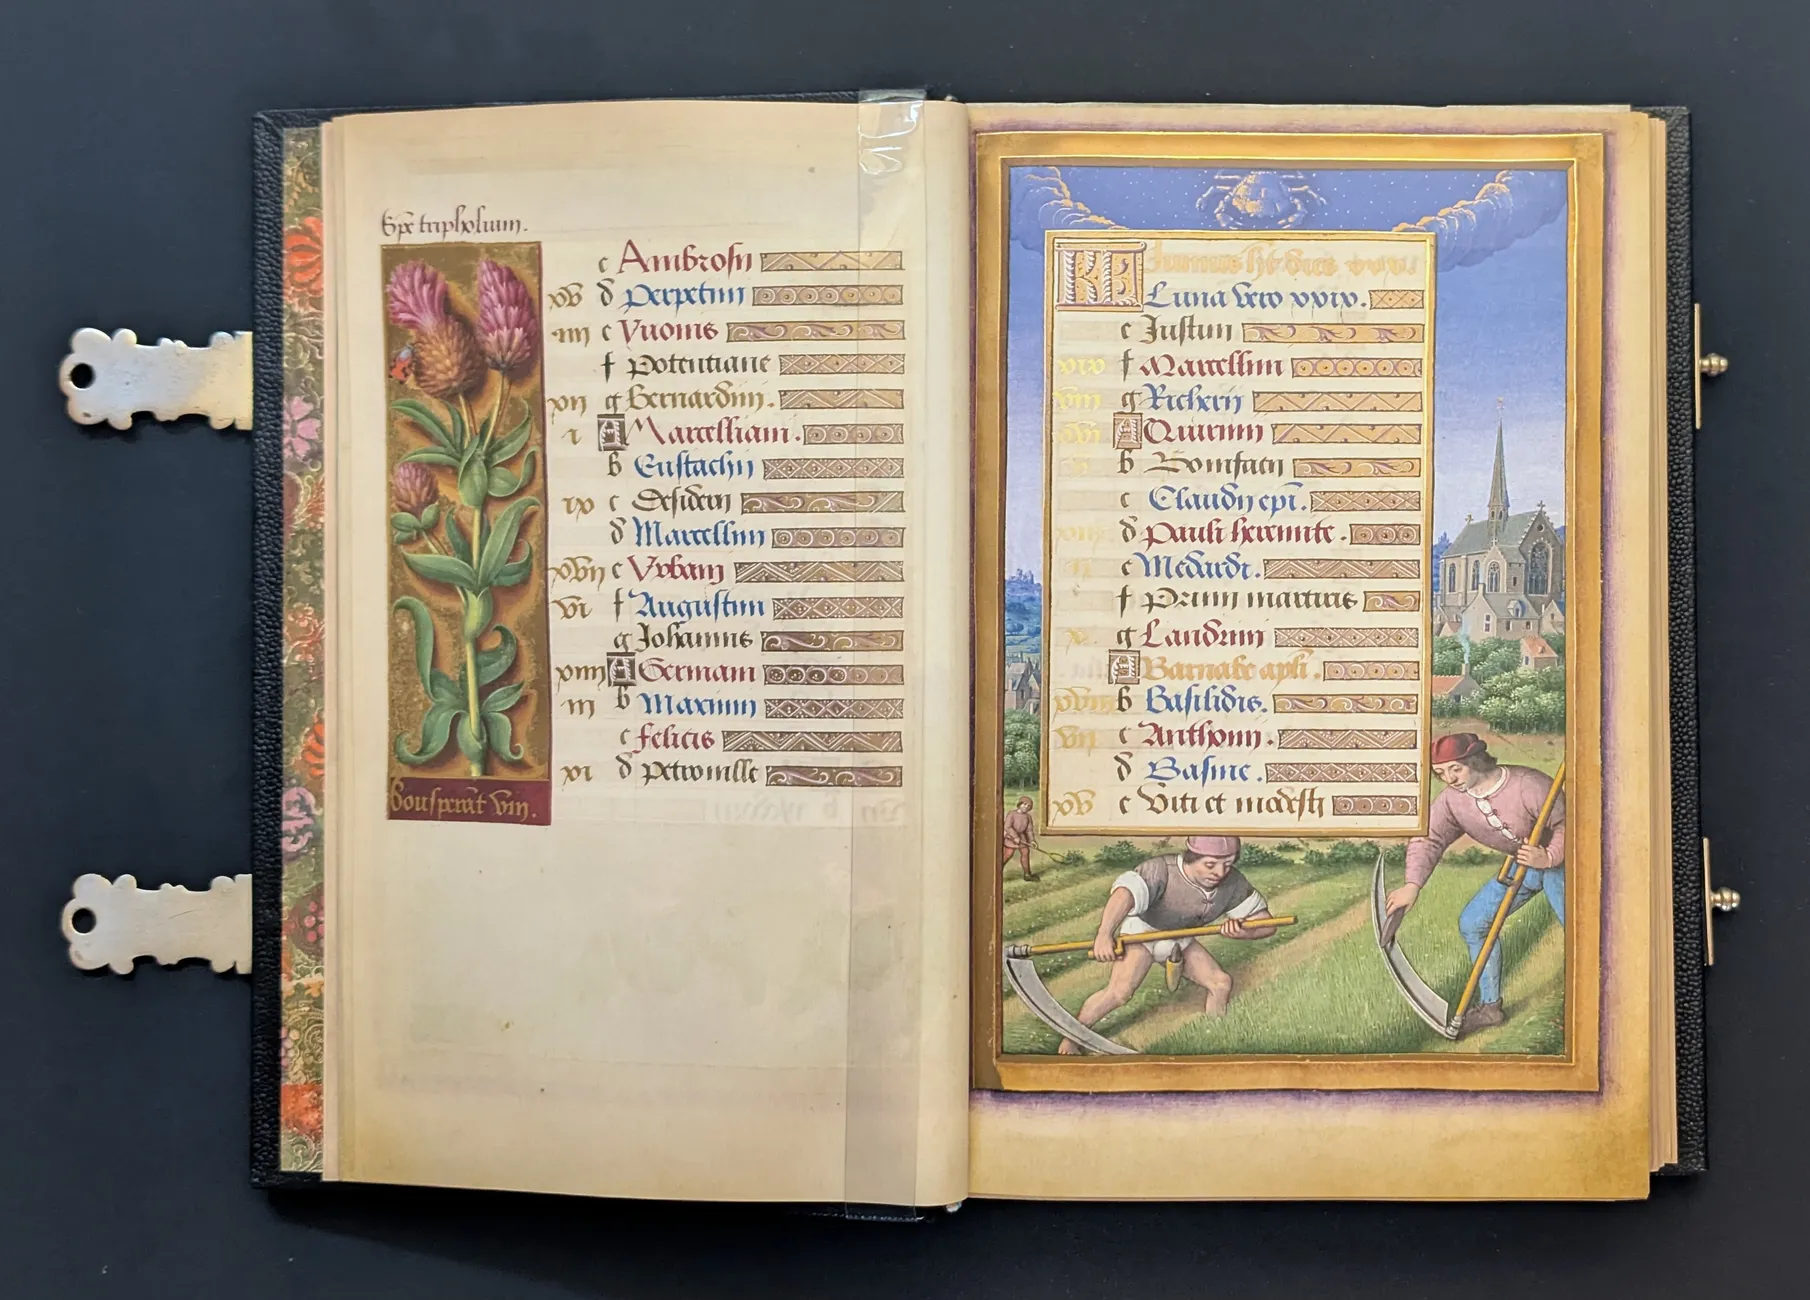 Spē tripholium.
c Ambrosii
xv d Perpetui
iiii e Yuonis
f Potentiane
xii g Bernardini.
i A Marcelliani.
b Eustachii
ix c Desiderii
d Marcellini
xvii e Vrbani
vi f Augustini
g Johannis
xiiii A Germani
iii b Maximi
c Felicis
xi d Petronille
KL Junius ht dies xxx.
Luna vero xxix.
e Justini
xix f Marcellini
viii g Richerii
xvi A Quirini
b Bonifacii
c Claudii epi.
xiii d Pauli heremite.
ii e Medardi.
f Primi martiris
x g Landrini
A Barnabe apli.
xviii b Basilidis.
vii c Anthonii.
d Basilii.
xv e Viti et modesti